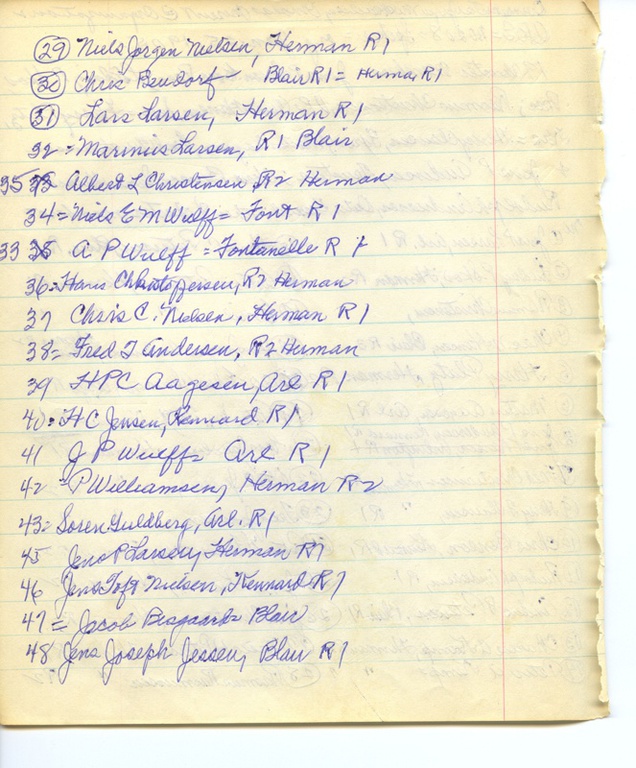 (29) Niels Jorgen Nielsen, Herman R1
(30) Chris Beudorf - Blair R1 = Herman R1
(31) Lars Larsen, Herman R1
32 = Marinus Larsen, R1 Blair
35 Albert L Christensen R2 Herman
34 = Niels E M Wulff = Font R1
33 A P Wulff = Fontanelle R 1
36 = Hans Christoffersen, R2 Herman
37 Chris C. Nielsen, Herman R1
38 = Fred T Andersen, R2 Herman
39 H P C Aagesen, Arl R1
40 = H C Jensen, Kennard R1
41 J P Wulff = Arl R1
42 = P Williamsen, Herman R2
43 = Soren Guldberg, Arl. R1
45 Jens P Larsen, Herman R1
46 Jens Toft Nielsen, Kennard R1
47 = Jacob Bisgaard = Blair
48 Jens Joseph Jessen, Blair R1